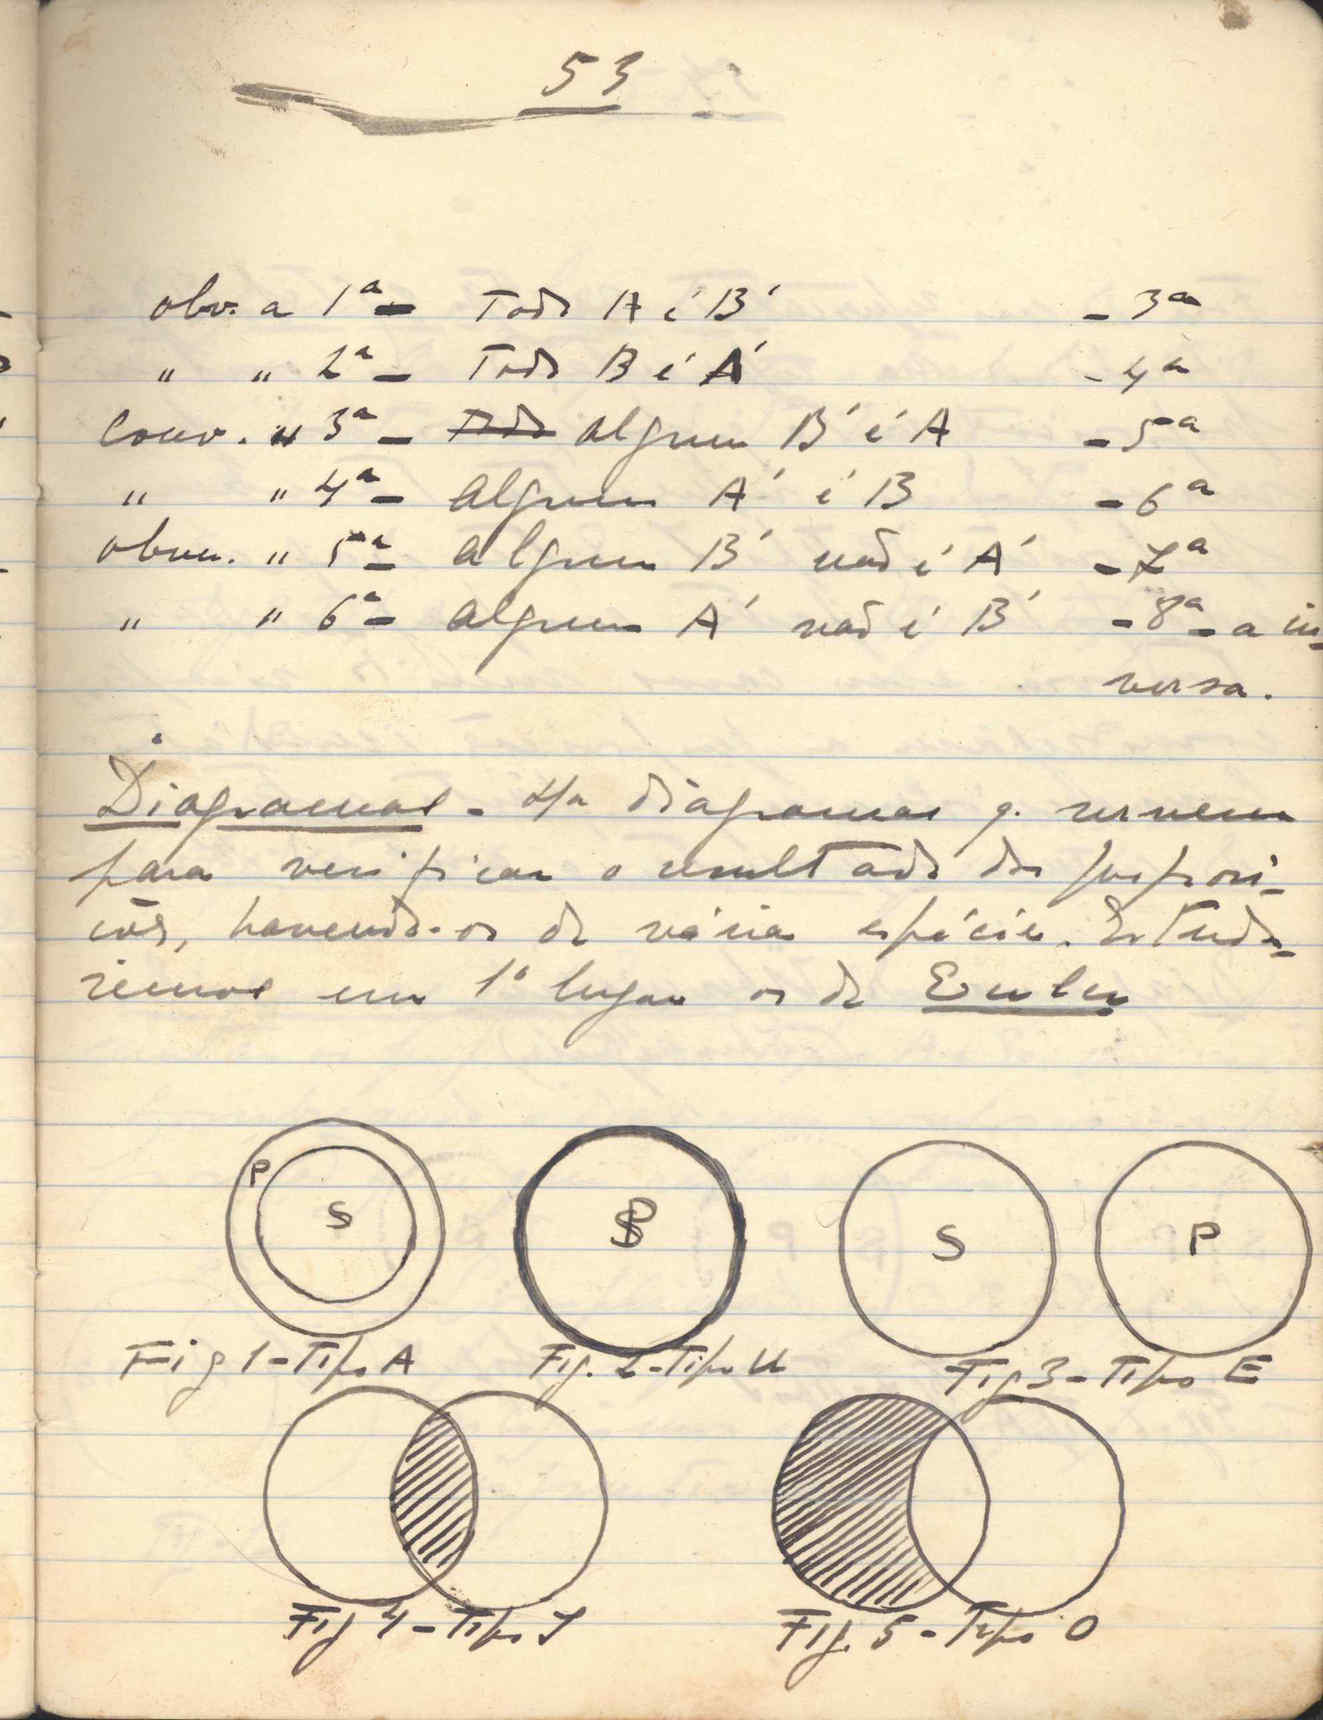 53
obv. a 1ª - Todo A é B' - 3ª
" " 2ª - Todo B é A' - 4ª
Conv. " 3ª - Todo algum B' é A - 5ª
" " 4ª - algum A' é B - 6ª
obvn. " 5ª - algum B' não é A' - 7ª
" " 6ª - algum A' não é B' - 8ª - a in-
versa.
Diagramas - Ha diagramas q. servem
para verificar o resultado das proposi-
ções, havendo-os de várias espécies. Estuda-
remos em 1º lugar os de Euler
P S
S P
S P
Fig 1 - Tipo A Fig. 2 - Tipo U Fig 3 - Tipo E
Fig 4 - Tipo I Fig. 5 - Tipo O